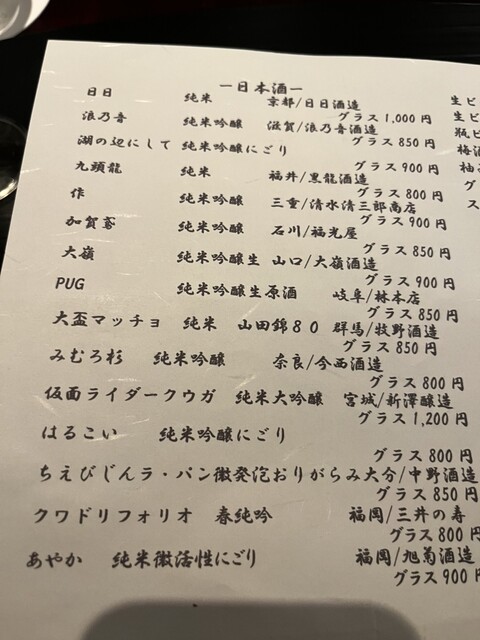 ー日本酒ー
日日 純米 京都/日日酒造
グラス 1,000 円
浪乃音 純米吟醸 滋賀/浪乃音酒造
グラス 850 円
湖の辺にして 純米吟醸にごり
グラス 900 円
九頭龍 純米 福井/黒龍酒造
グラス 800 円
作 純米吟醸 三重/清水清三郎商店
グラス 900 円
加賀鳶 純米吟醸 石川/福光屋
グラス 850 円
大嶺 純米吟醸生 山口/大嶺酒造
グラス 900 円
PUG 純米吟醸生原酒 岐阜/林本店
グラス 850 円
大盃マッチョ 純米 山田錦80 群馬/牧野酒造
グラス 850 円
みむろ杉 純米吟醸 奈良/今西酒造
グラス 800 円
仮面ライダークウガ 純米大吟醸 宮城/新澤醸造
グラス 1,200 円
はるこい 純米吟醸にごり
グラス 800 円
ちえびじんラ・パン微発泡おりがらみ大分/中野酒造
グラス 850 円
クワドリフォリオ 春純吟 福岡/三井の寿
グラス 800 円
あやか 純米微活性にごり 福岡/旭菊酒造
グラス 900 円
生ビ
生ビ
瓶ビ
梅酒
柚
グ
ス